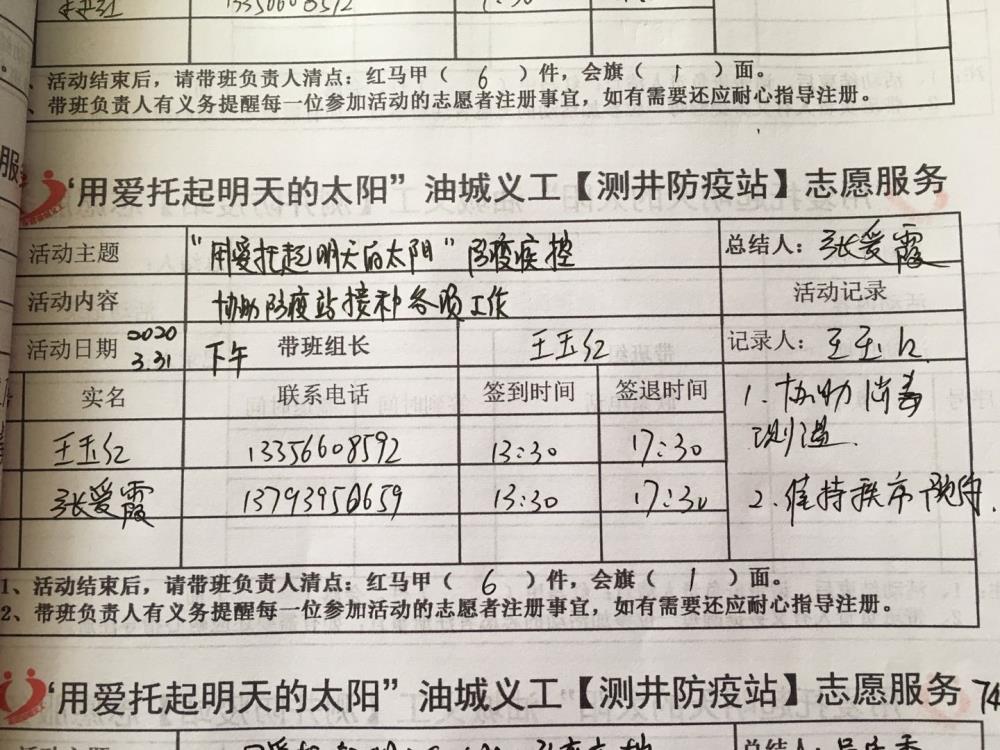 13356608592
活动结束后，请带班负责人清点：红马甲（ 6 ）件，会旗（ 1 ）面。
带班负责人有义务提醒每一位参加活动的志愿者注册事宜，如有需要还应耐心指导注册。
“用爱托起明天的太阳”油城义工【测井防疫站】志愿服务
活动主题 “用爱托起明天的太阳”防疫疾控 总结人：张爱霞
活动内容 协助防疫站接种各项工作 活动记录
活动日期 2020 3.31 下午 带班组长 王玉红 记录人：王玉红
实名 联系电话 签到时间 签退时间 1.协助消毒
测温
王玉红 13356608592 13:30 17:30
张爱霞 13:30 17:30 2.维持秩序
1、活动结束后，请带班负责人清点：红马甲（ 6 ）件，会旗（ 1 ）面。
2、带班负责人有义务提醒每一位参加活动的志愿者注册事宜，如有需要还应耐心指导注册。
“用爱托起明天的太阳”油城义工【测井防疫站】志愿服务 74